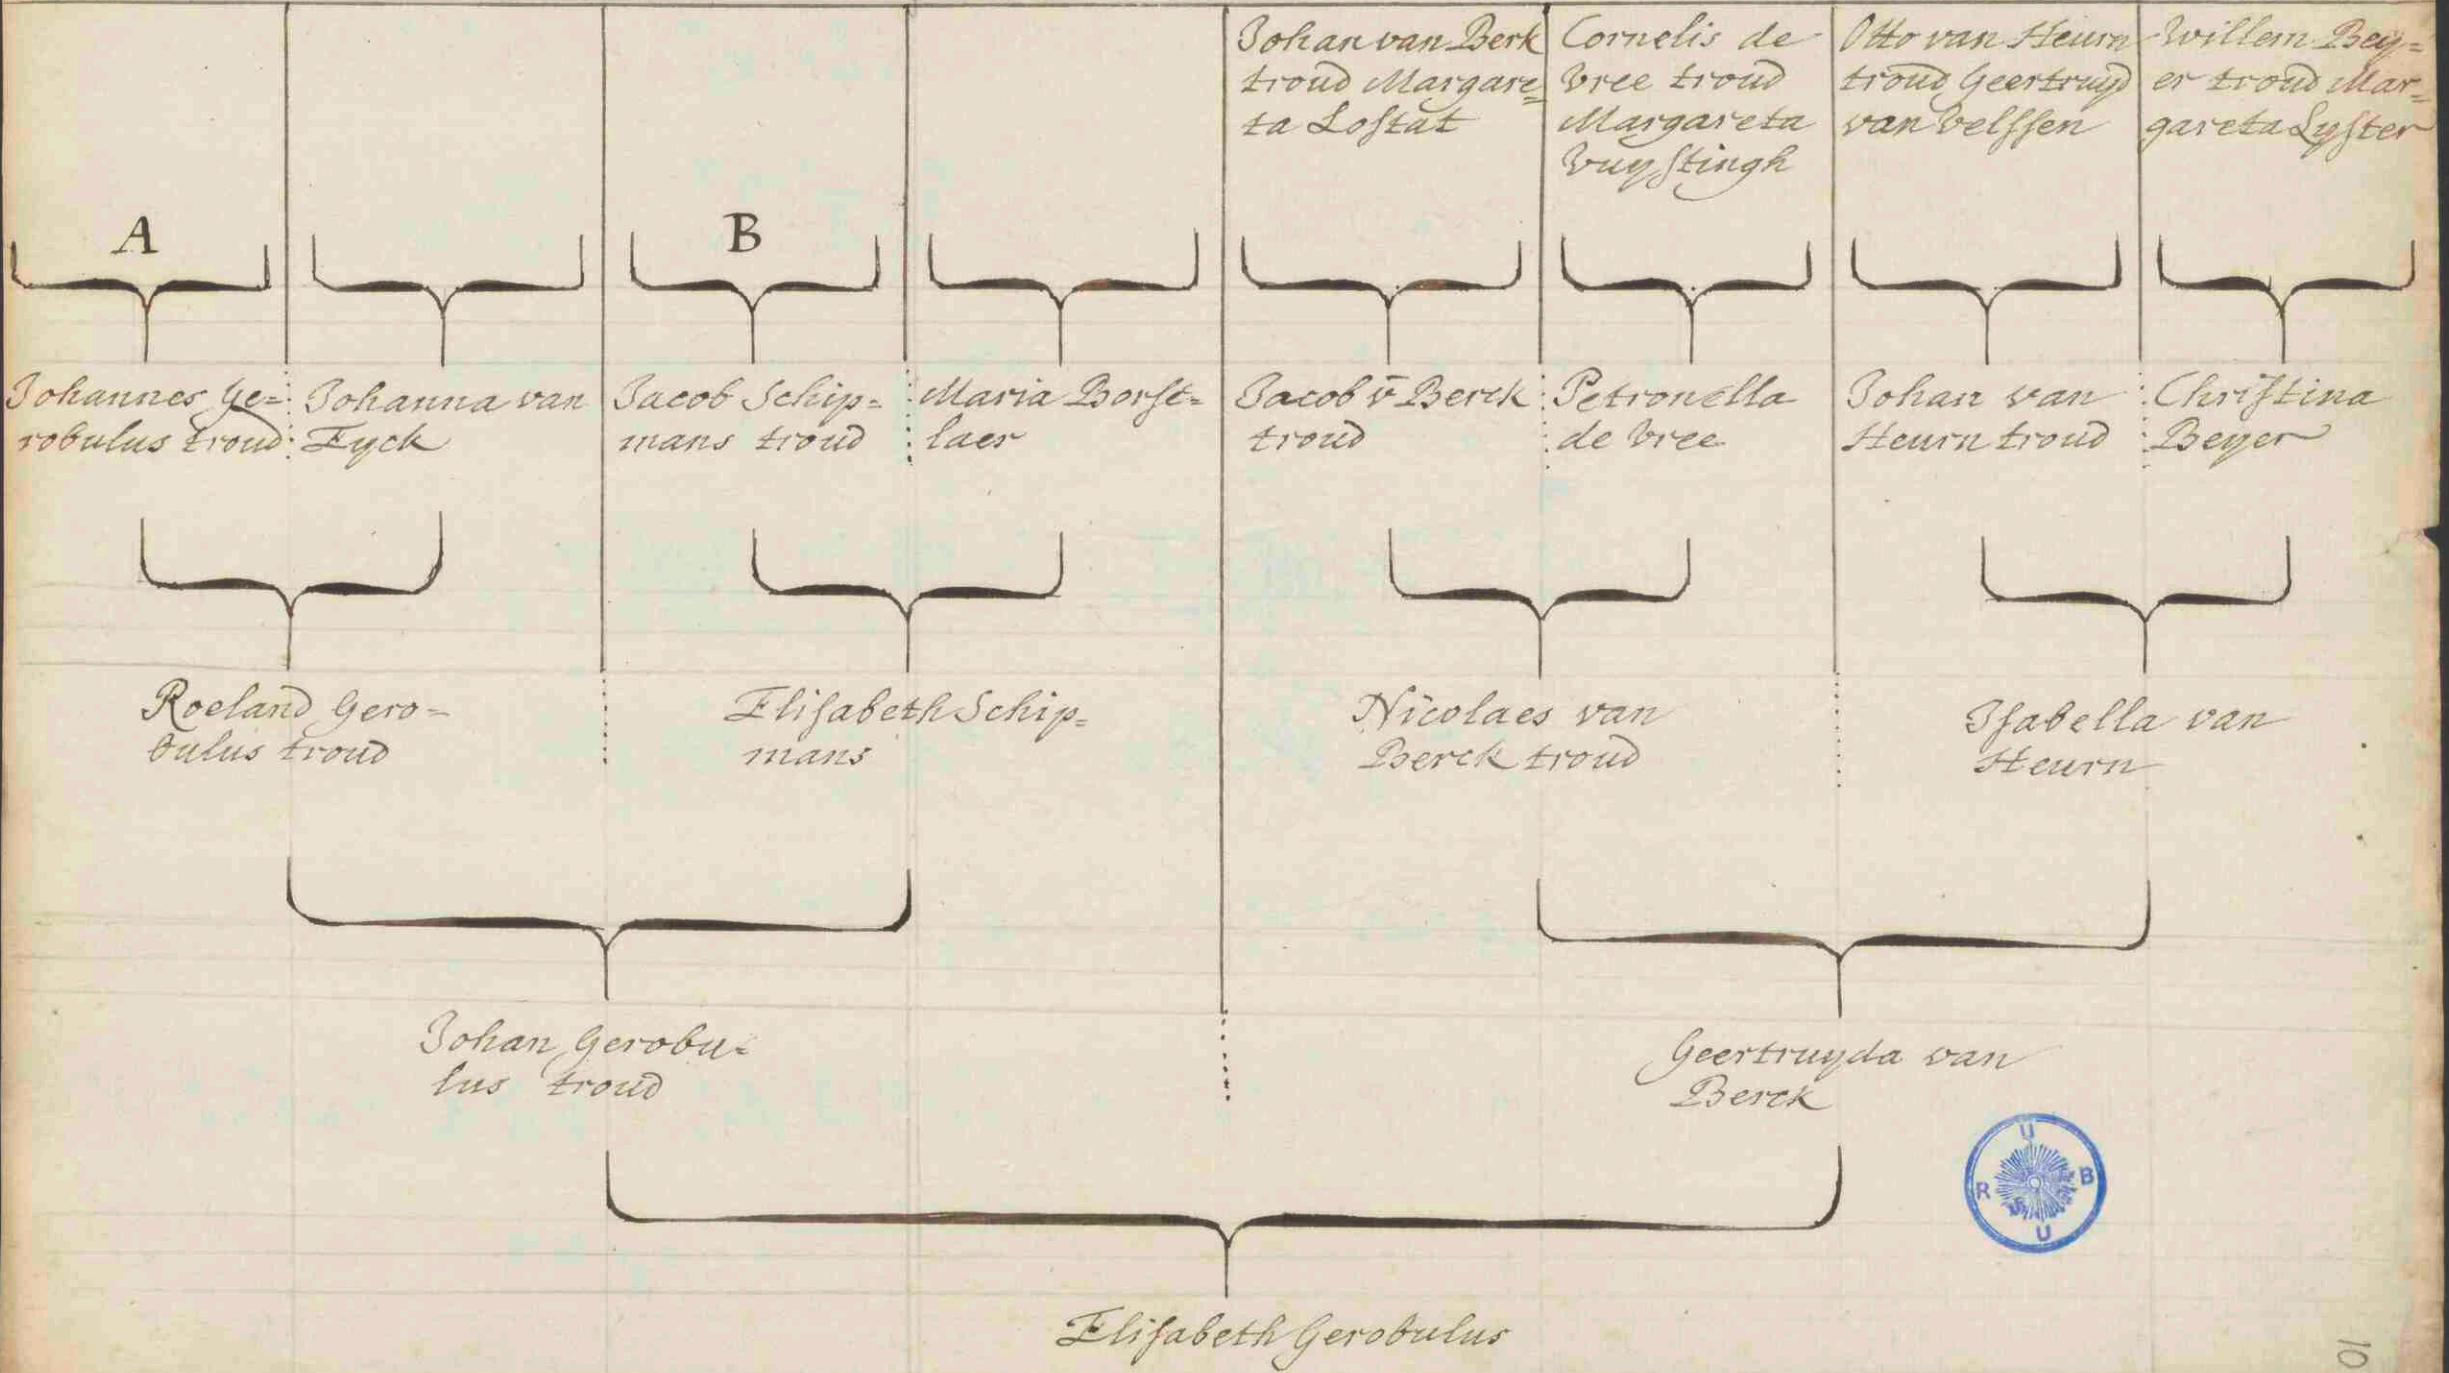 Johan van Berk
troud Margare=
ta Lostat
Cornelis de
Vree troud
Margareta
Vuystingh
Otto van Heurn
troud Geertruyd
van Velssen
Willem Bey=
er troud Mar=
gareta Lyster
A
B
Johannes Ge=
robulus troud
Johanna van
Eyck
Jacob Schip=
mans troud
Maria Borst=
laer
Jacob v̄ Berck
troud
Petronella
de Vree
Johan van
Heurn troud
Christina
Beyer
Roeland Gero=
bulus troud
Elisabeth Schip=
mans
Nicolaes van
Berck troud
Isabella van
Heurn
Johan Gerobu=
lus troud
Geertruyda van
Berck
U
R B
U
Elisabeth Gerobulus
10